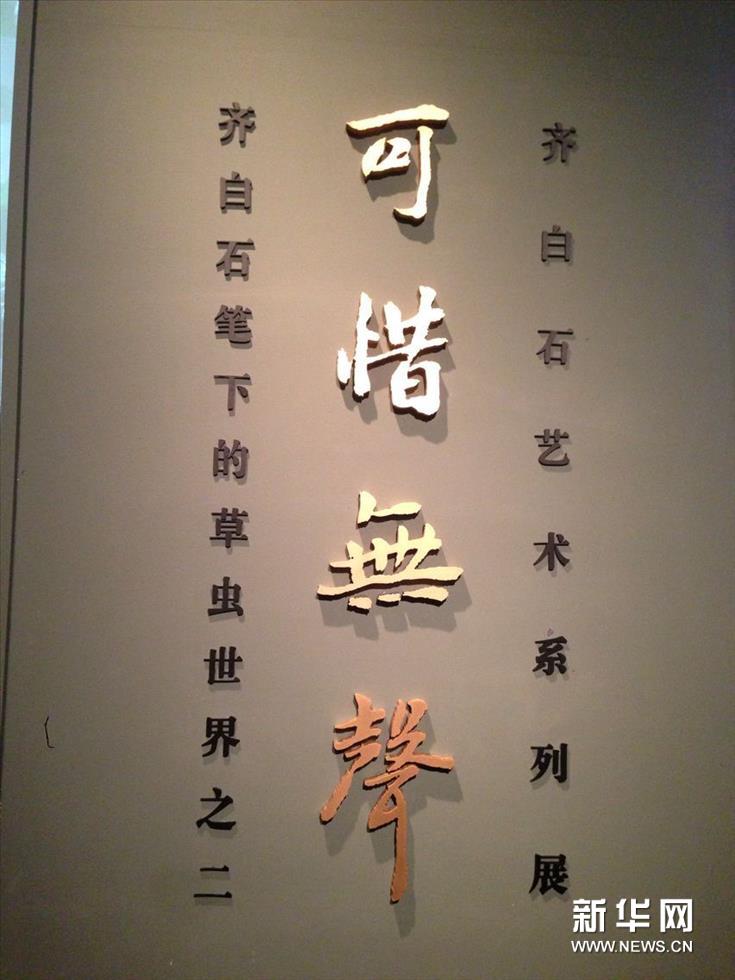 齐白石艺术系列展
可惜無聲
齐白石笔下的草虫世界之二
新华网
WWW.NEWS.CN